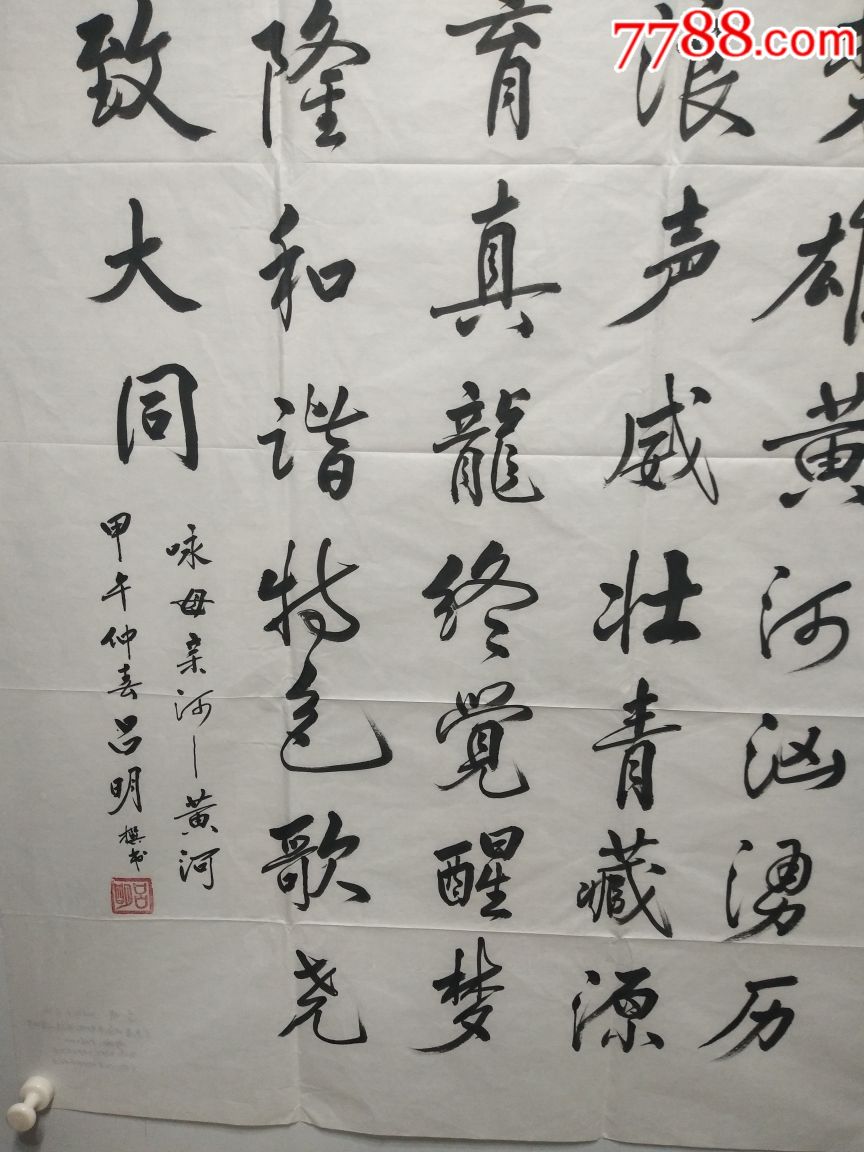 7788.com
雄黄河汹湧历
浪声威壮青藏源
育真龍终覺醒梦
隆和谐特色歌尧
致大同
咏母亲河—黄河
甲午仲春吕明撰书
吕明